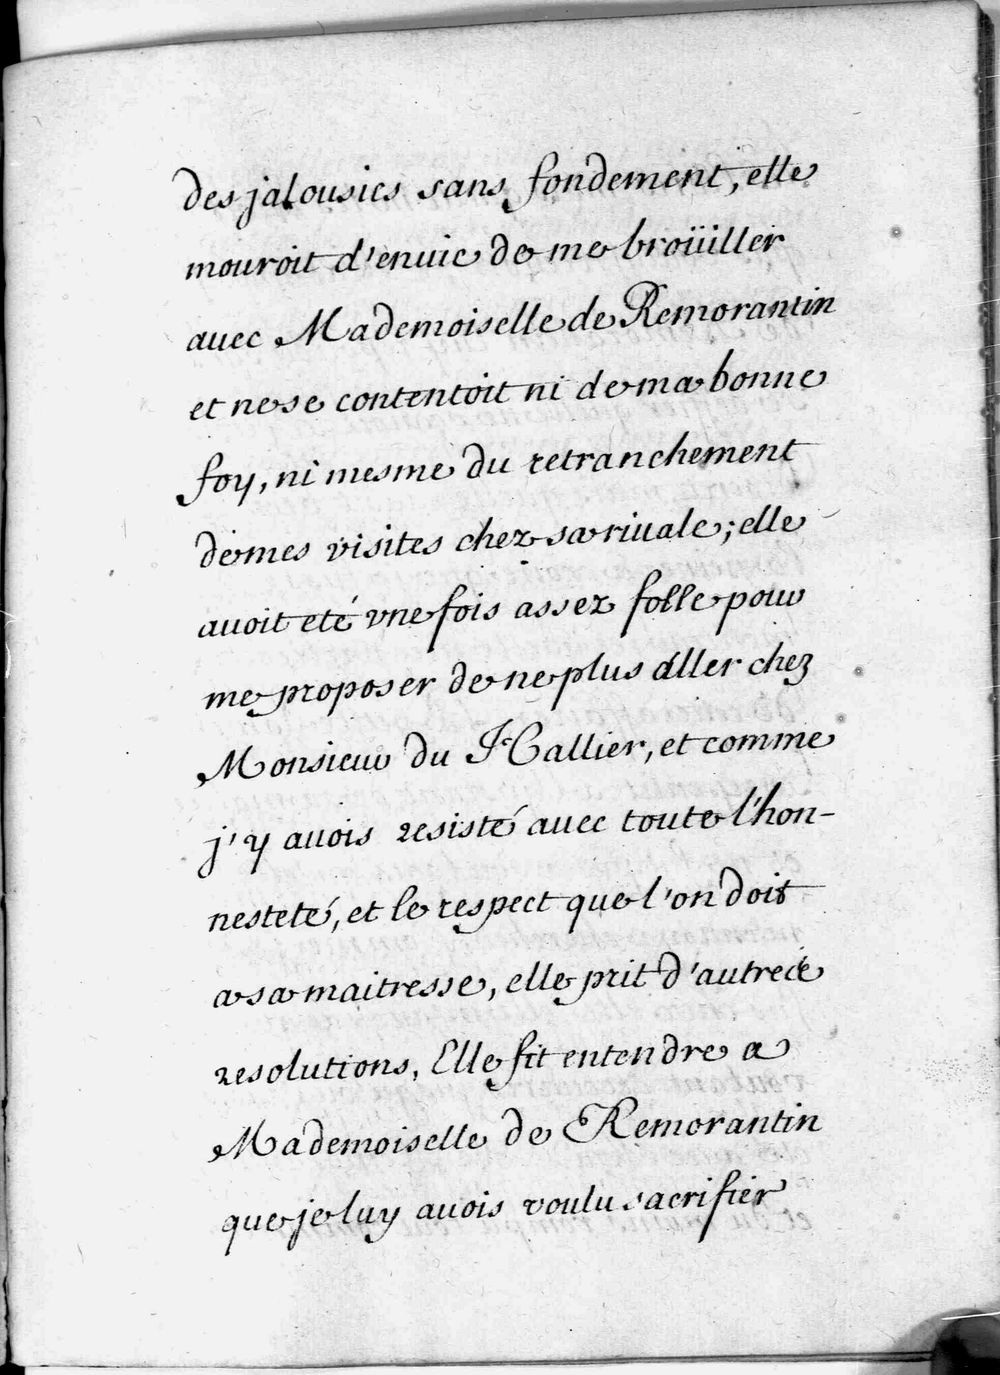 des jalousies sans fondement, elle
mouroit d'enuie de me broüiller
auec Mademoiselle de Remorantin
et ne se contentoit ni de ma bonne
foy, ni mesme du retranchement
de mes visites chez sa riuale; elle
auoit eté vne fois assez folle pour
me proposer de ne plus aller chez
Monsieur du Hallier, et comme
j'y auois resisté auec toute l'hon-
nesteté, et le respect que l'on doit
a sa maitresse, elle prit d'autre
resolutions, Elle fit entendre a
Mademoiselle de Remorantin
que je luy auois voulu sacrifier